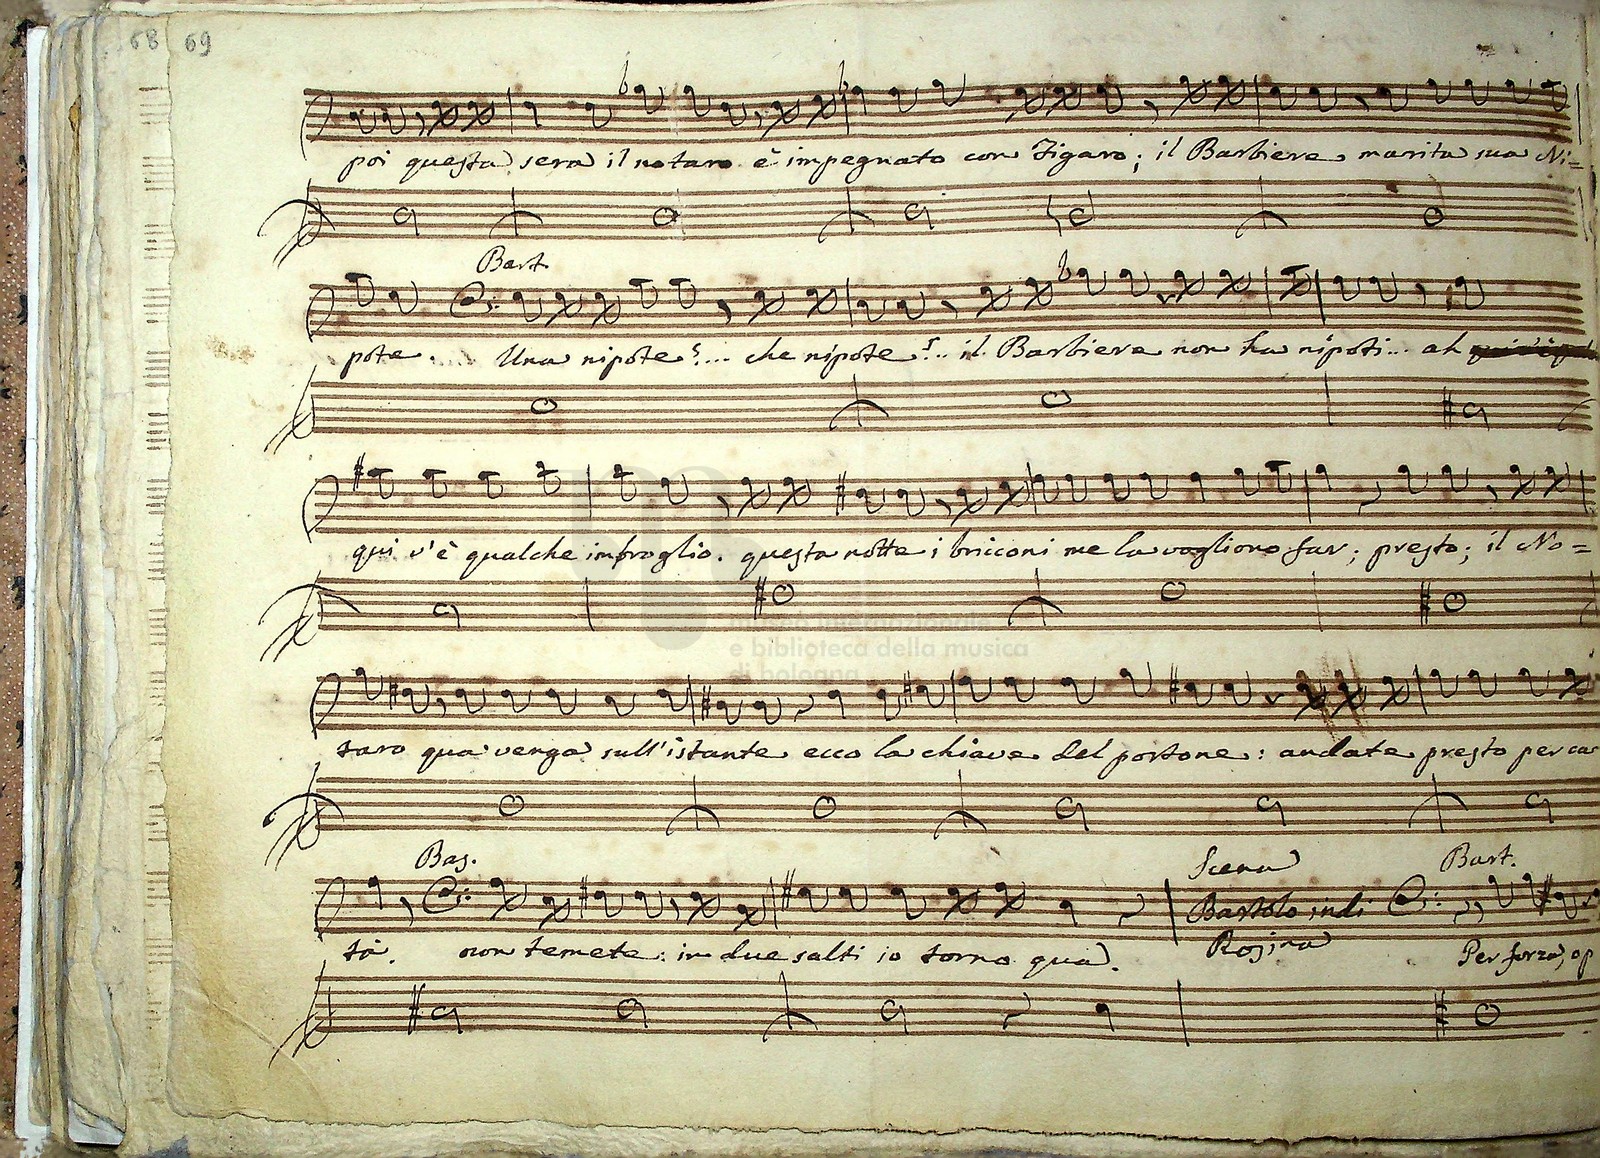 68 69
poi questa sera il notaro è impegnato con Figaro; il Barbiere marita sua Ni=
Bart.
pote. Una nipote?... che nipote?.. il Barbiere non ha nipoti... ah
qui v'è qualche imbroglio. questa notte i bricconi me la vogliono far; presto; il No=
museo internazionale
e biblioteca della musica
di bologna
taro qua venga sull'istante ecco la chiave del portone: andate presto per ca
Bas. Scena Bart.
Bartolo indi
tà. non temete: in due salti io torno qua. Rosina Per forza, op